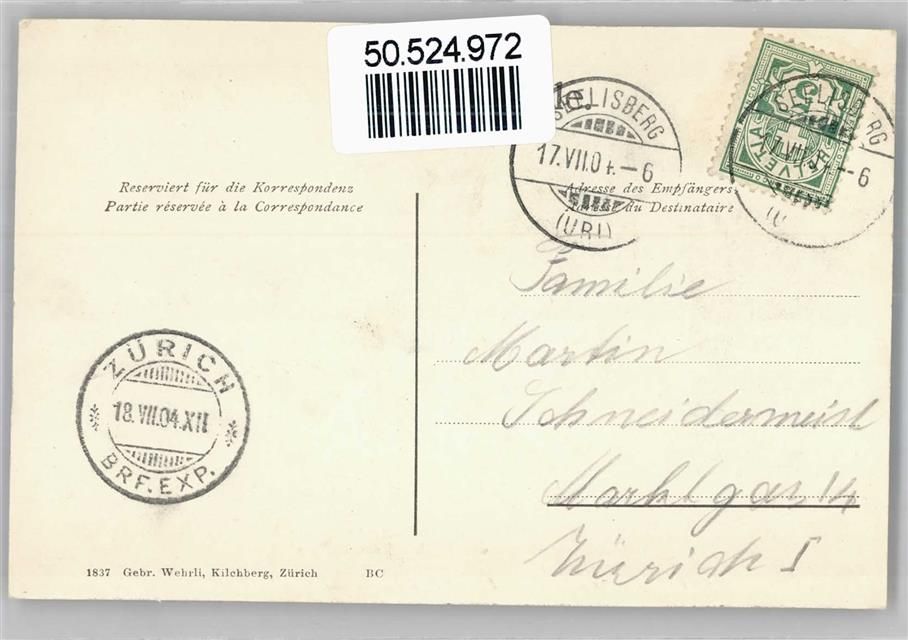 50.524.972
SEELISBERG
17.VII.04.–6
(URI)
SEELISBERG
VII
–6
(U
HELVETIA
Reserviert für die Korrespondenz
Partie réservée à la Correspondance
Adresse des Empfängers
Adresse du Destinataire
Familie
Martin
Schneidermeist
Marktgas 14
Zürich I
ZÜRICH
18.VII.04.XII
BRF. EXP.
1837 Gebr. Wehrli, Kilchberg, Zürich BC